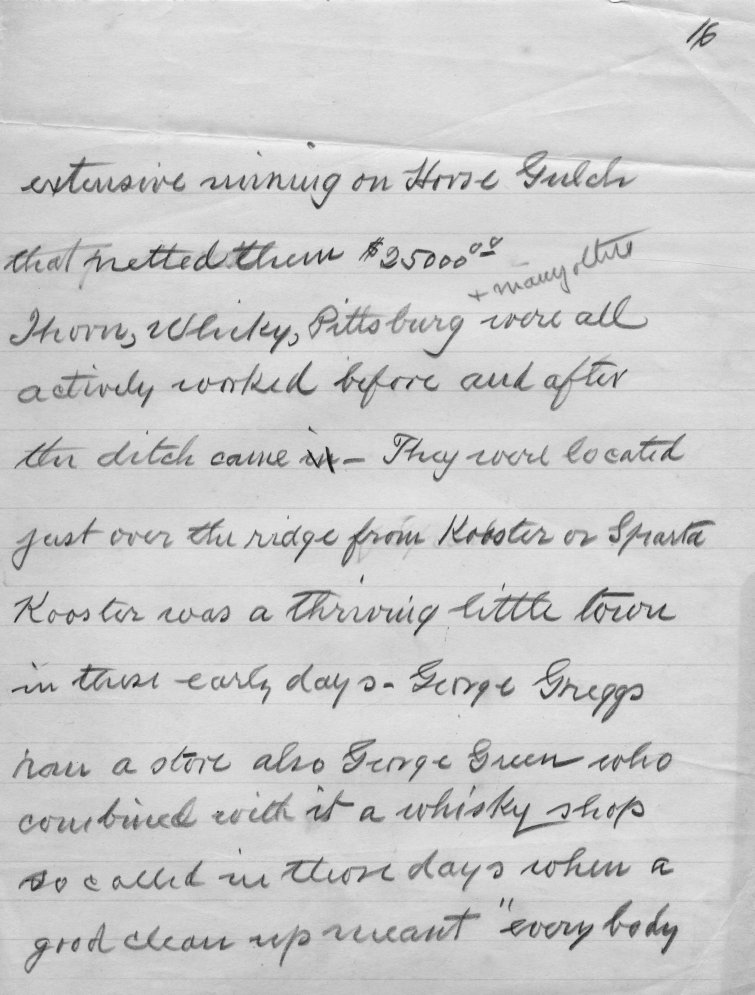 16
extensive mining on Horse Gulch
that netted them $25000.00
+ many others
Thorn, Whicky, Pittsburg were all
actively worked before and after
the ditch came in - They were located
just over the ridge from Kooster or Sparta
Kooster was a thriving little town
in those early days - George Greggs
ran a store also George Green who
combined with it a whisky shop
so called in those days when a
good clean up meant "every body